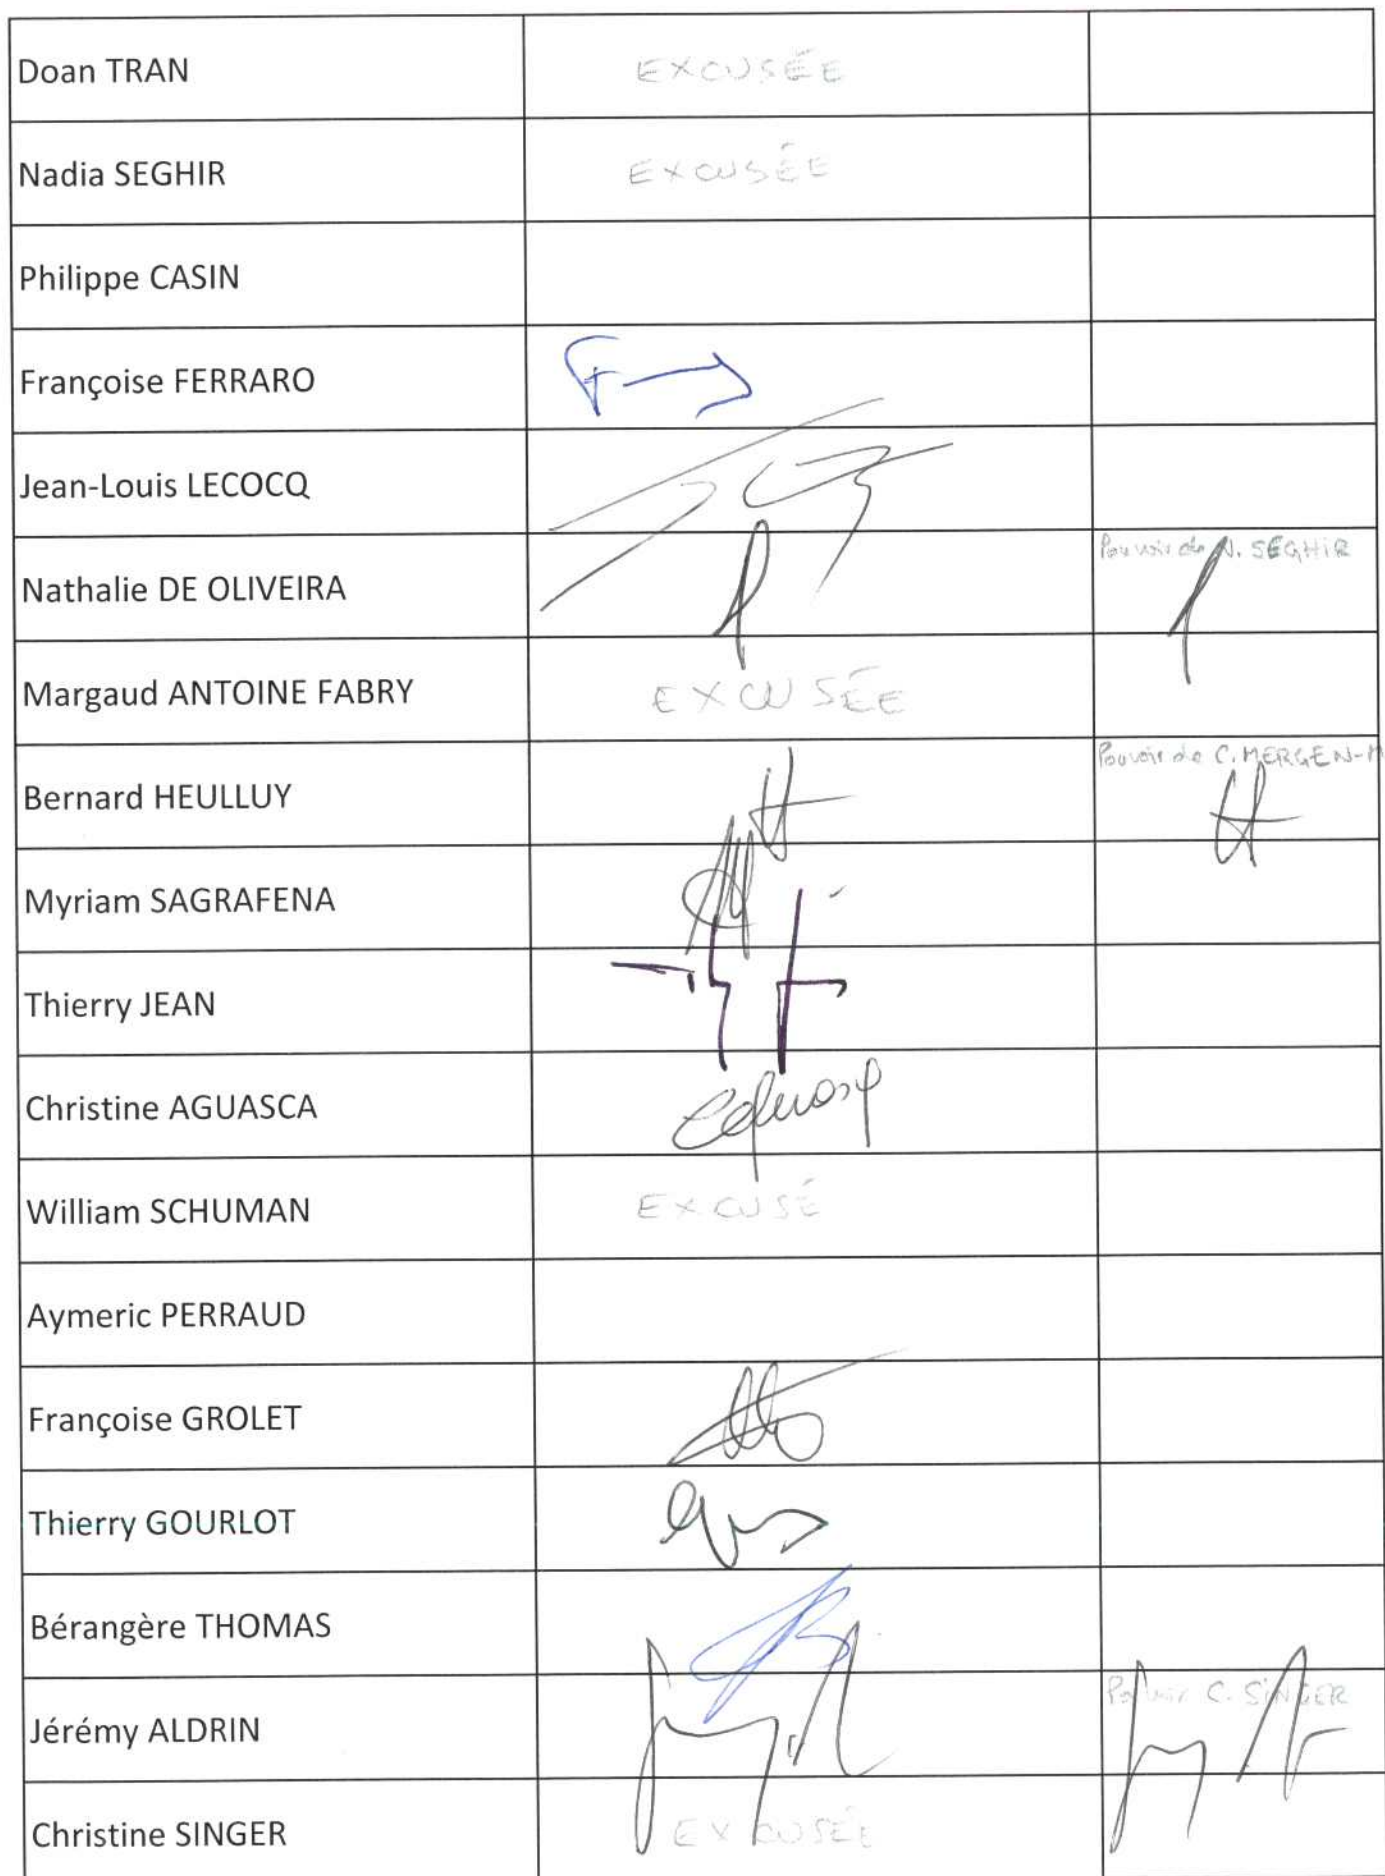 Doan TRAN EXCUSÉE
Nadia SEGHIR EXCUSÉE
Philippe CASIN
Françoise FERRARO
Jean-Louis LECOCQ
Nathalie DE OLIVEIRA Pouvoir de N. SEGHIR
Margaud ANTOINE FABRY EXCUSÉE
Bernard HEULLUY Pouvoir de C. MERGEN-M
Myriam SAGRAFENA
Thierry JEAN
Christine AGUASCA
William SCHUMAN EXCUSÉ
Aymeric PERRAUD
Françoise GROLET
Thierry GOURLOT
Bérangère THOMAS
Jérémy ALDRIN Pouvoir C. SINGER
Christine SINGER EXCUSÉE